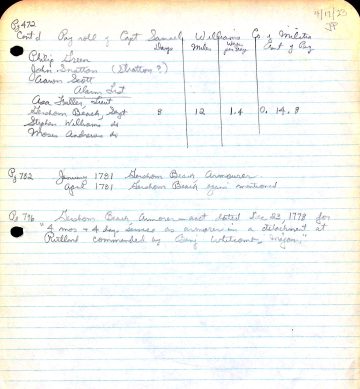 4/17/23
JP
Pg 472
Cont'd Pay roll of Capt Samuel Williams Co of Militia
Days Miles Wages per day Amt of Pay
Philip Green
John Stratton (Stratton?)
Aaron Scott
Alarm List
Asa Fuller, Lieut
Gershom Beach, Sergt 8 12 1.4 0. 14. 8
Stephen Williams do
Moses Andrews do
Pg 782 January 1781 Gershom Beach Armourer
April 1781 Gershom Beach again mentioned
Pg 796 Gershom Beach Armorer - acct dated Dec 23, 1778 for
"4 mos & 4 days service as armorer in a detachment at
Rutland commanded by Benj Whitcomb, major"